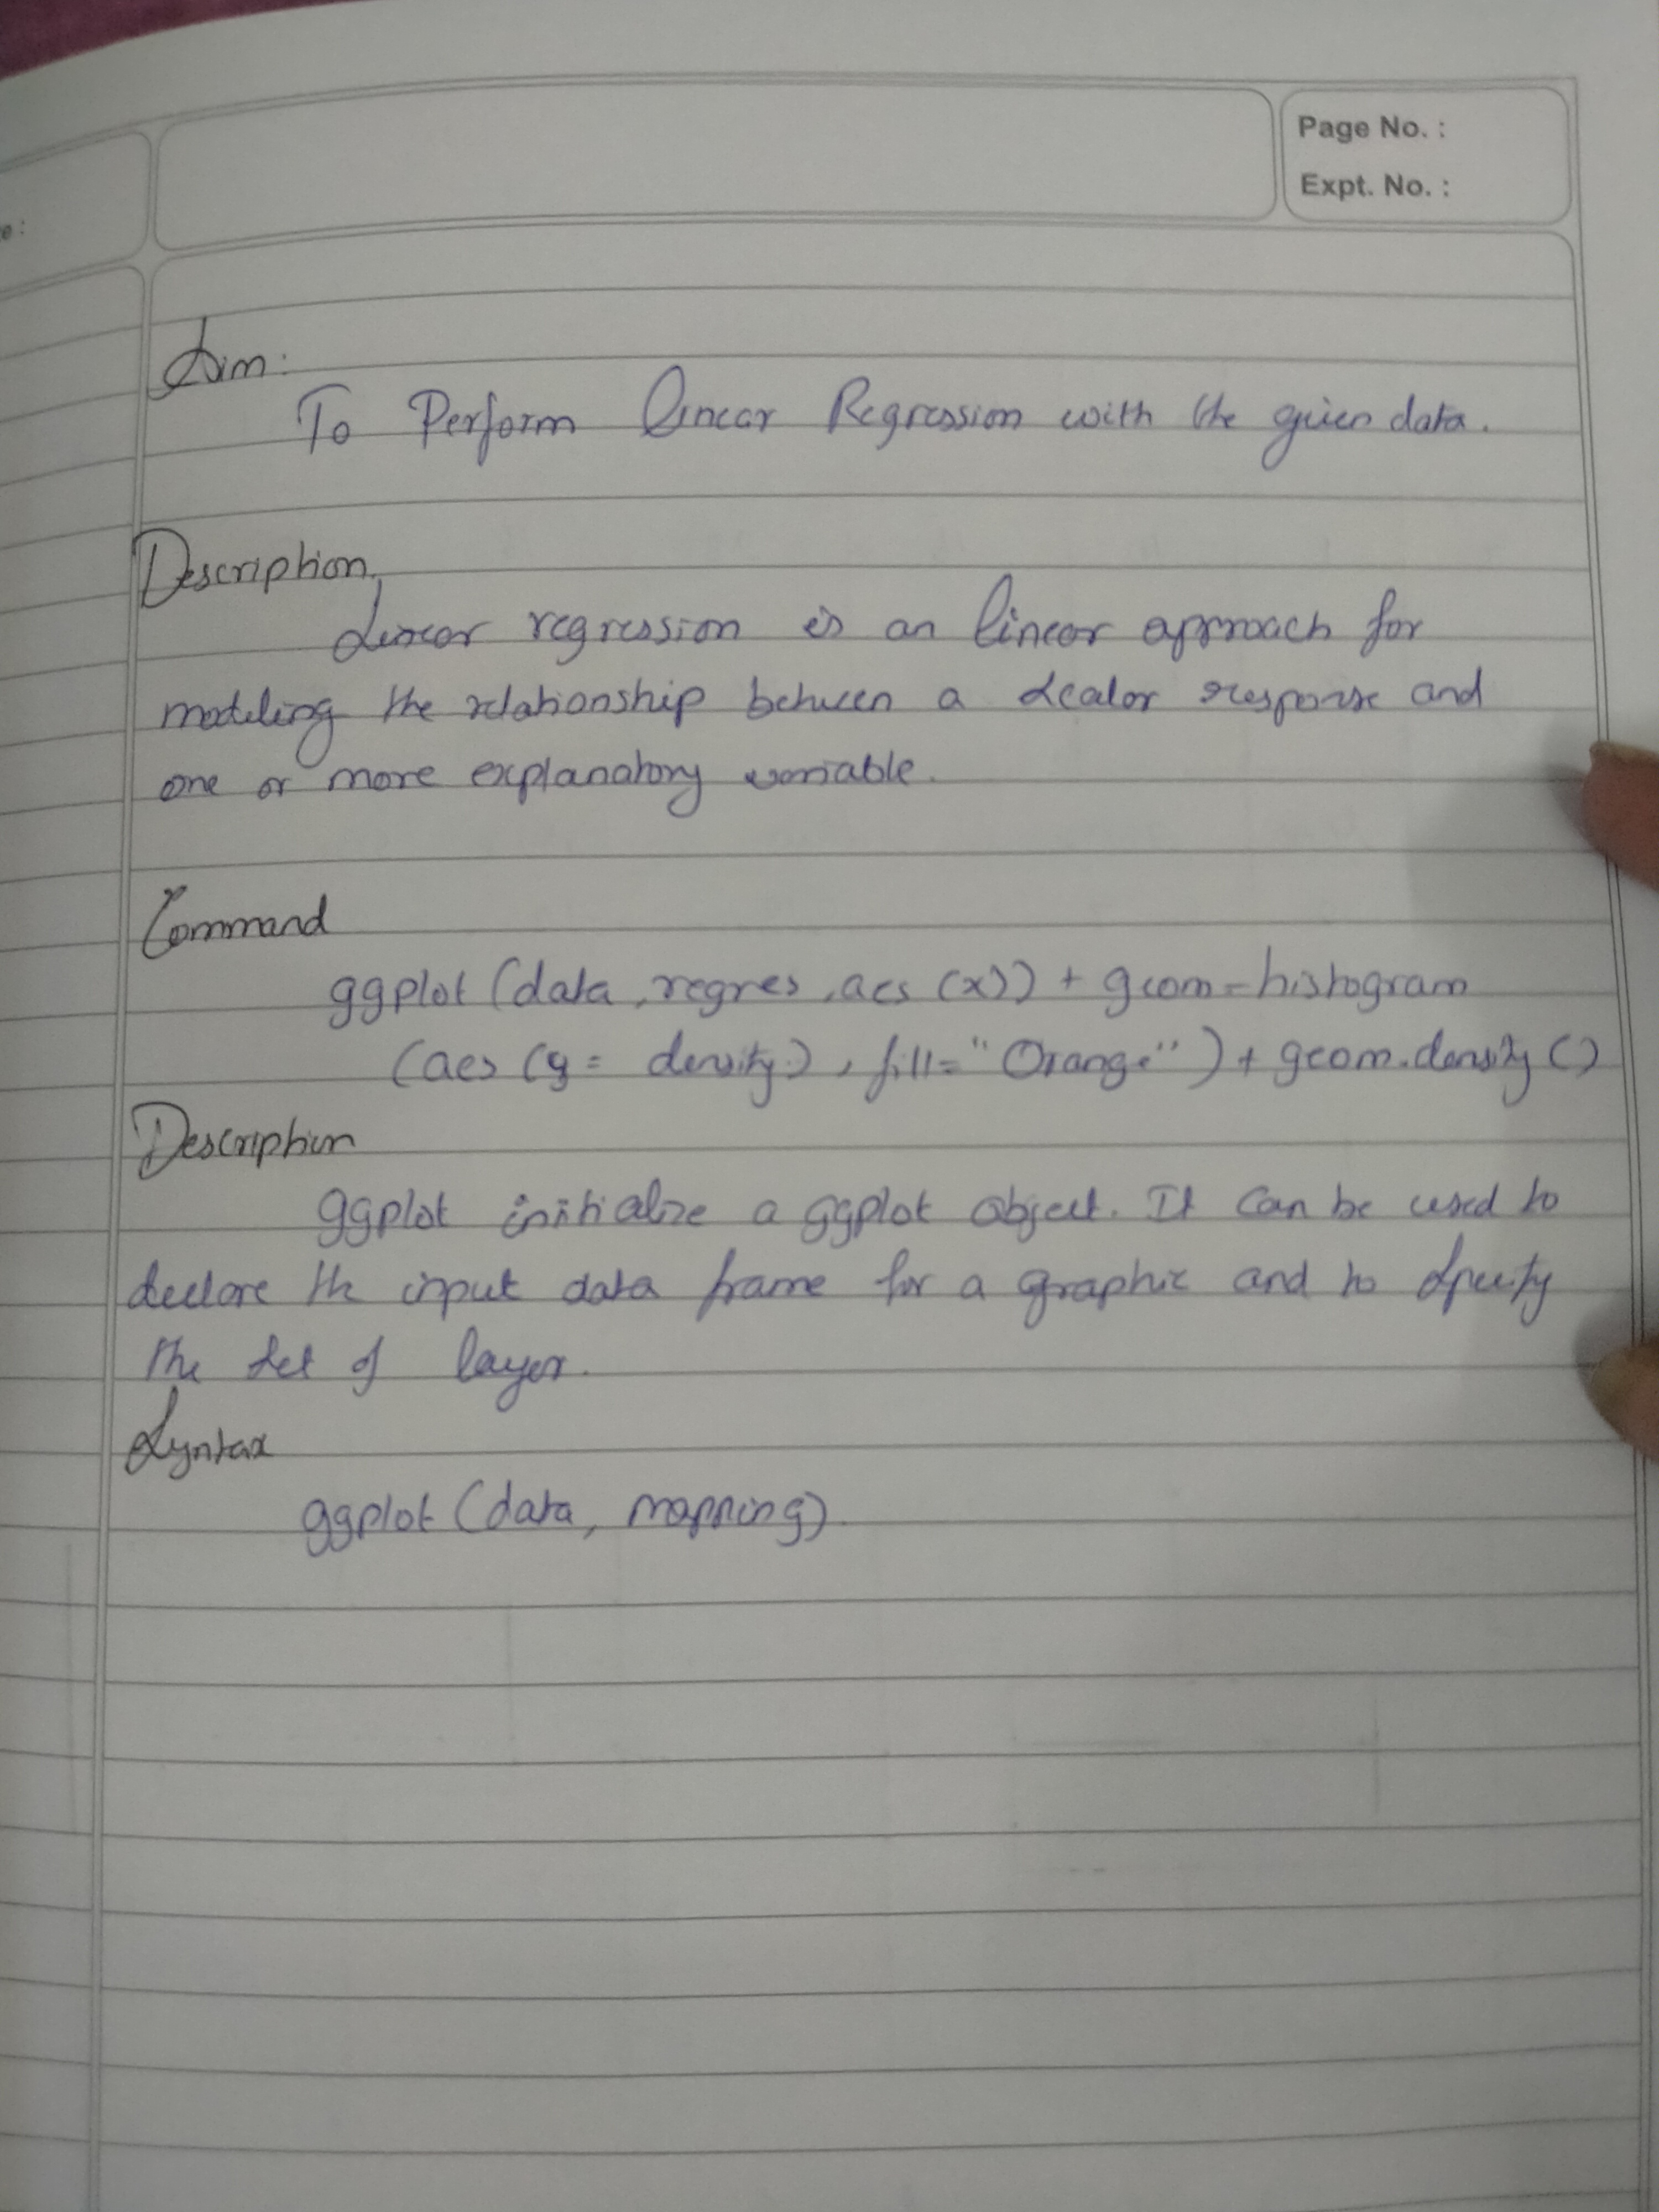 Page No. :
Expt. No. :
e :
Aim:
To Perform linear Regression with the given data.
Description
Linear regression is an linear approach for
modeling the relationship between a scalar response and
one or more explanatory variable.
Command
ggplot (data, regres, aes (x)) + geom-histogram
(aes (y = density), fill= "Orange") + geom.density ()
Description
ggplot initialize a ggplot object. It can be used to
declare the input data frame for a graphic and to specify
the set of layer.
Syntax
ggplot (data, mapping).